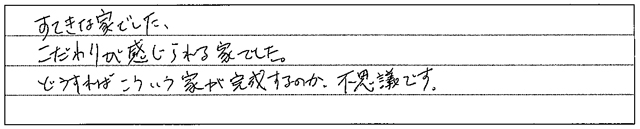 すてきな家でした、
こだわりが感じられる家でした。
どうすればこういう家が完成するのか、不思議です。